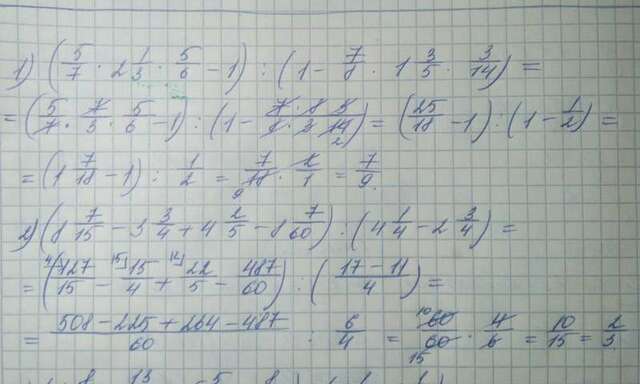 1) (5/7 · 2 1/3 · 5/6 - 1) : (1 - 7/8 · 1 3/5 · 3/14) =
= (5/7 · 7/3 · 5/6 - 1) : (1 - 7·8·3/8·3·14 2) = (25/18 - 1) : (1 - 1/2) =
= (1 7/18 - 1) : 1/2 = 7/18 9 · 2/1 = 7/9.
2) (8 7/15 - 3 3/4 + 4 2/5 - 8 7/60) : (4 1/4 - 2 3/4) =
= (4) 127/15 - 15) 15/4 + 12) 22/5 - 487/60) : (17 - 11/4) =
= 508 - 225 + 264 - 487/60 : 6/4 = 10 60/60 15 · 4/6 = 10/15 = 2/3